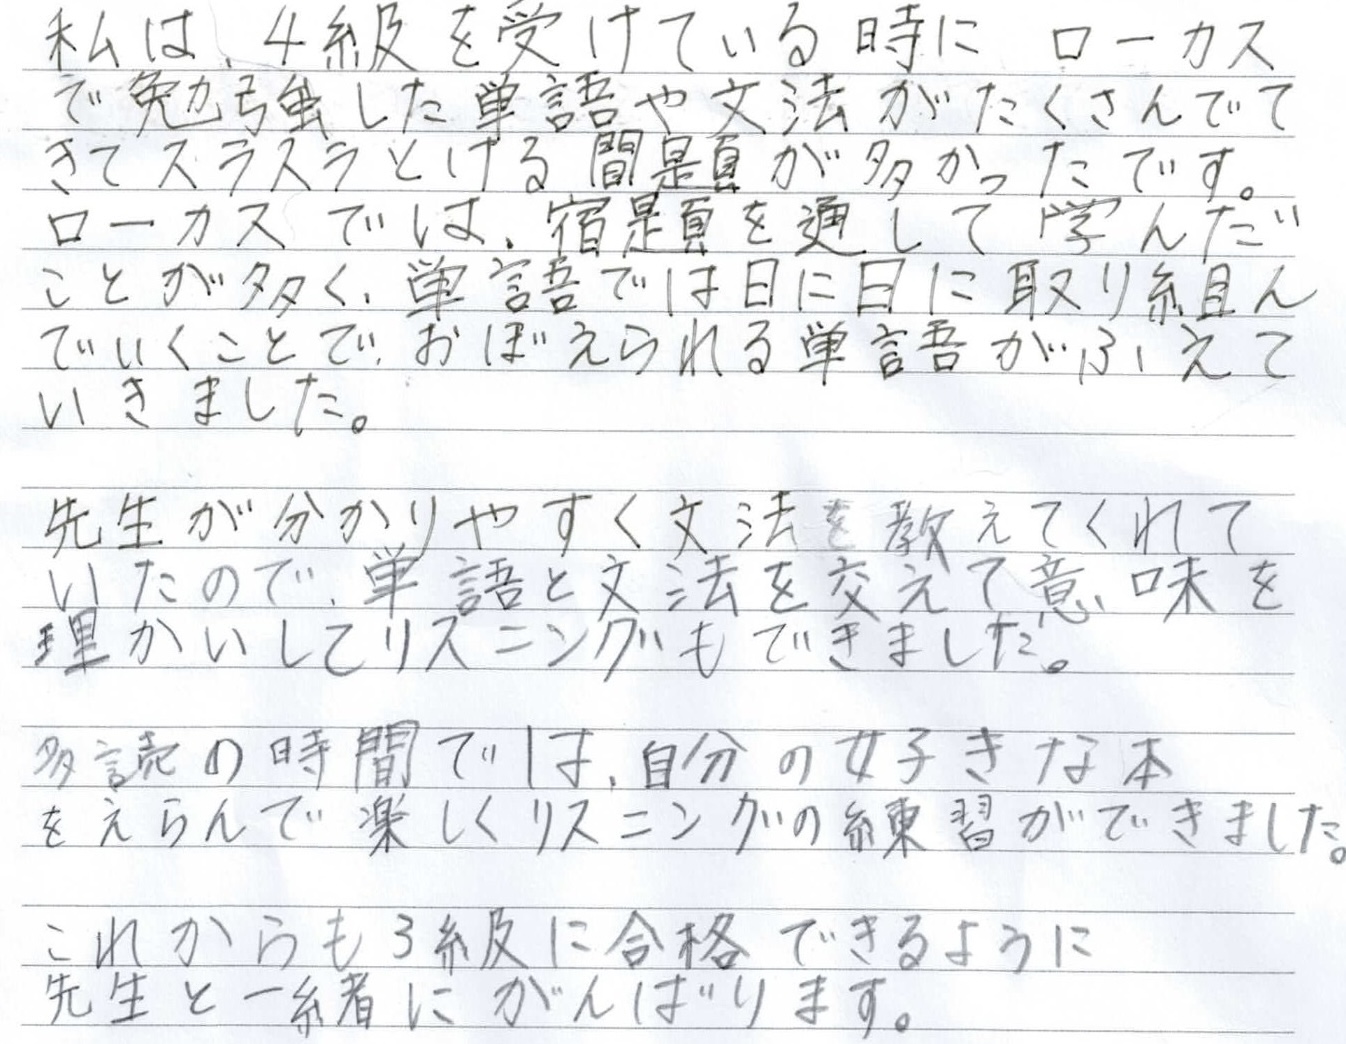 私は、4級を受けている時に ローカス
で勉強した単語や文法がたくさんでて
きてスラスラとける問題が多かったです。
ローカスでは、宿題を通して学んだ
ことが多く、単語では日に日に取り組ん
でいくことで、おぼえられる単語がふえて
いきました。
先生が分かりやすく文法を教えてくれて
いたので、単語と文法を交えて意味を
理かいしてリスニングもできました。
多読の時間では、自分の好きな本
をえらんで楽しくリスニングの練習ができました。
これからも3級に合格できるように
先生と一緒にがんばります。